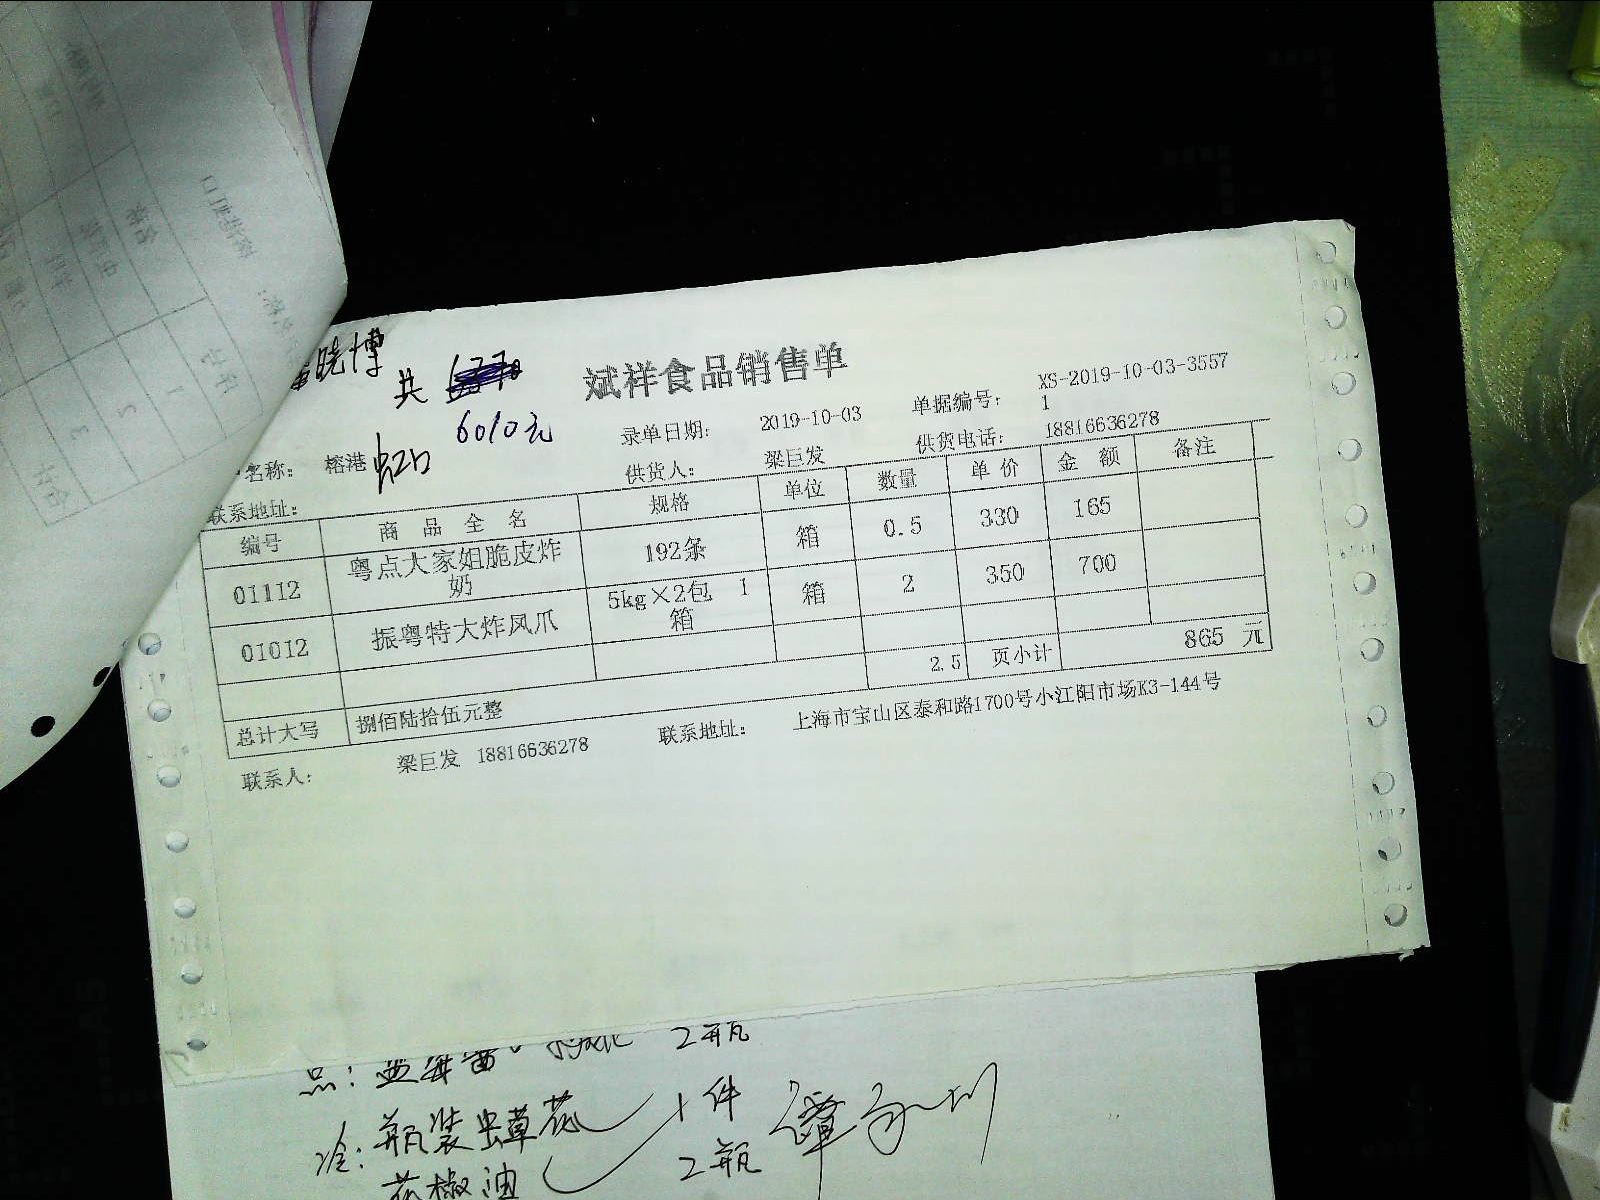 晓博
共
6010元
斌祥食品销售单
录单日期： 2019-10-03 单据编号： XS-2019-10-03-3557
1
名称： 榕港 虹口 供货人： 梁巨发 供货电话： 18816636278
联系地址：
编号 商品全名 规格 单位 数量 单价 金额 备注
01112 粤点大家姐脆皮炸奶 192条 箱 0.5 330 165
01012 振粤特大炸凤爪 5kg×2包 1箱 箱 2 350 700
2.5 页小计 865 元
总计大写 捌佰陆拾伍元整
联系人： 梁巨发 18816636278 联系地址： 上海市宝山区泰和路1700号小江阳市场K3-144号
品： 2瓶
冷：瓶装虫草花 1件
花椒油 2瓶